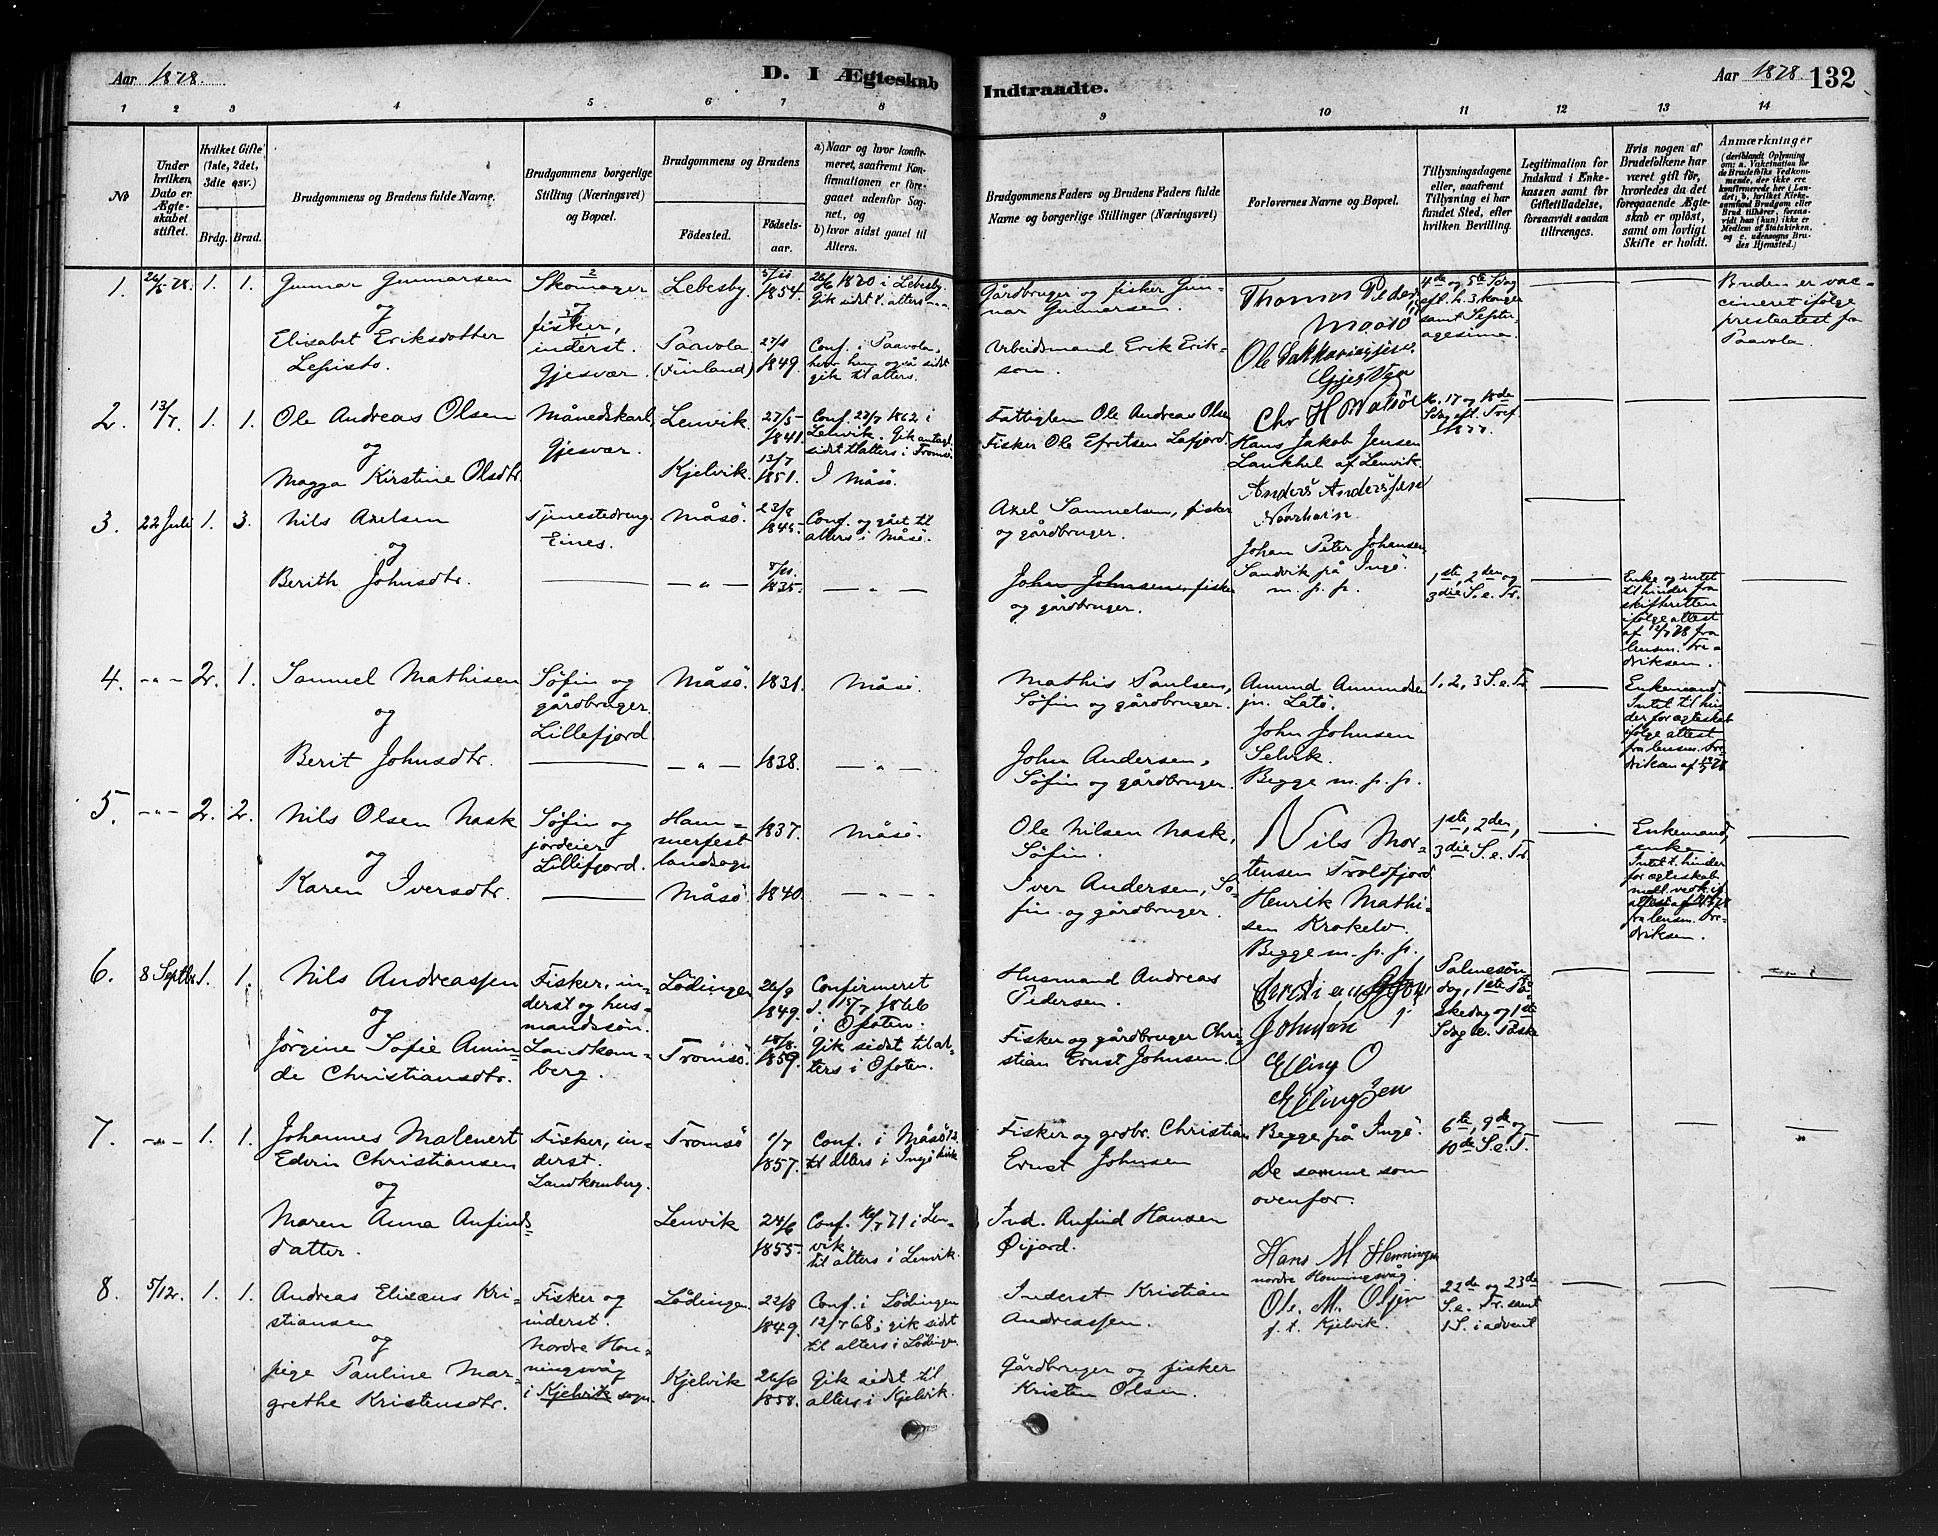 Aar 1878.
D. I Ægteskab
Indtraadte.
Aar 1878.
132
1 2 3 4 5 6 7 8 9 10 11 12 13 14
№
Under hvilken Dato er Ægteskabet stiftet.
Hvilket Gifte (1ste, 2det, 3die osv.)
Brdg. Brud.
Brudgommens og Brudens fulde Navne.
Brudgommens borgerlige Stilling (Næringsvei) og Bopæl.
Brudgommens og Brudens
Fødested.
Fødselsaar.
a) Naar og hvor konfirmeret, saafremt Konfirmationen er foregaaet udenfor Sognet, og
b) hvor sidst gaaet til Alters.
Brudgommens Faders og Brudens Faders fulde Navne og borgerlige Stillinger (Næringsvei)
Forlovernes Navne og Bopæl.
Tillysningsdagene eller, saafremt Tillysning ei har fundet Sted, efter hvilken Bevilling.
Legitimation for Indskud i Enkekassen samt for Giftetilladelse, forsaavidt saadan tiltrænges.
Hvis nogen af Brudefolkene har været gift før, hvorledes da det foregaaende Ægteskab er opløst, samt om lovligt Skifte er holdt.
Anmærkninger
(deriblandt Oplysning om: a. Vaccination for de Brudefolks Vedkommende, der ikke ere konfirmerede her i Landet; b. hvilket Kirkesamfund Brudgom eller Brud tilhører, forsaavidt han (hun) ikke er Medlem af Statskirken, og c. udensogns Brudes Hjemsted.)
1. 26/5 78. 1. 1.
Gunnar Gunnarsen
og
Elisabet Eriksdatter
Lepisto.
Skomager
og
fisker,
inderst.
Gjesvær.
Lebesby.
Paavola
(Finland)
5/11
1854.
1849.
26/6 1870 i Lebesby.
Gik sidst t. alters — " —
Conf. i Paavola,
hvor hun også sidst
gik til alters.
Gårdbruger og fisker Gun-
nar Gunnarsen.
Arbeidsmand Erik Erik-
son.
Thomas Peder
Maasø
Ole Sakkariassen
Gjesvær
4de og 5te Sdag
eft. h. 3 konger
samt Septu-
agesima.
Bruden er vac-
cineret ifølge
presteattest fra
Paavola.
2. 13/7. 1. 1.
Ole Andreas Olsen
og
Magga Kirstine Olsdtr.
Månedskarl,
Gjesvær.
Lenvik.
Kjelvik.
27/5
1841.
13/7
1851.
Conf. 27/7 1862 i
Lenvik. Gik antagl.
sidst til alters i Tromsø.
I Måsø.
Fattiglem Ole Andreas Olsen
Fisker Ole Efretsen Lafjord.
Chr H Watsöe
Hans Jakob Jensen
Laukhel af Lenvik.
16. 17 og 18de
Sdag eft. Tref.
1877.
3. 22 Juli 1. 3.
Nils Axelsen
og
Berith Johnsdtr.
Tjenestedreng.
Eines.
Måsø.
— " —
23/8
1845.
8/11
1835.
Conf. og gået til
alters i Måsø.
— " —
Axel Samuelsen, fisker
og gårdbruger.
John Johnsen, fisker
og gårdbruger.
Anders Andersen
Johan Peter Johansen
Sandvik på Ingø.
m. p. p.
1ste, 2den og
3die S. e. Tr.
Enke og intet
til hinder fra
skifteretten
ifølge attest
af 12/7 78 fra
lensm. Fre-
driksen.
4. — " — 2. 1.
Samuel Mathisen
og
Berit Johnsdtr.
Søfin og
gårdbruger.
Lillefjord
Måsø.
— " —
1831.
1838.
Måsø.
— " —
Mathis Paulsen,
Søfin og gårdbruger.
John Andersen,
Søfin og gårdbruger.
Amund Amundsen
jn. Latø.
John Johnsen
Selvik.
Begge m. p. p.
1, 2, 3 S. e. Tr.
Enkemand.
Intet til hin-
der for ægteskab
ifølge attest
fra lensm. Fre-
driksen af
5. — " — 2. 2.
Nils Olsen Nask
og
Karen Iversdtr.
Søfin og
jordeier
Lillefjord.
Ham-
merfest
landsogn
Måsø
1837.
1840.
Måsø.
— " —
Ole Nilsen Nask,
Søfin.
Iver Andersen, Sø-
fin og gårdbruger.
Nils Mor-
tensen Troldfjord
Henrik Mathi-
sen Krokelv.
Begge m. p. p.
1ste, 2den,
3die S. e. Tr.
Enkemand,
enke.
Intet t. hinder
for ægteskab
fra lensm. Fre-
driksen.
6. 8 Septbr. 1. 1.
Nils Andreassen
og
Jørgine Sofie Amin-
de Christiansdtr.
Fisker, in-
derst og hus-
mandssøn.
Landkom-
berg.
Lødingen
Tromsø.
26/9
1849.
18/8
1859.
Confirmeret
d. 15/7 1866
i Ofoten.
Gik sidst til al-
ters i Ofoten.
Husmand Andreas
Pedersen.
Fisker og gårdbruger Chri-
stian Ernst Johnsen.
Christian
Johnsen
Elling O
Ellingsen
Palmesøn-
dag, 1ste På-
skedag og 1ste
Sdag e. Påske
7. — " — 1. 1.
Johannes Malenert
Edvin Christiansen
og
Maren Anna Anfinds-
datter.
Fisker, in-
derst.
Landkomberg.
Tromsø
Lenvik
1/7
1857.
24/6
1855.
Conf. i Måsø
til alters i Ingø kirke
Conf. 16/7 71 i Len-
vik.
til alters i Lenvik.
Fisker og grdbr. Christian
Ernst Johnsen
Ind. Anfind Hansen
Øijord.
Begge på Ingø.
De samme som
ovenfor.
6te, 9de og
10de S. e. T.
8. 5/12. 1. 1.
Andreas Elisæus Kri-
stiansen
og
pige Pauline Mar-
grethe Kristensdtr.
Fisker og
inderst.
Nordre Hon-
ningsvåg
i Kjelvik sogn.
Lødingen
Kjelvik
22/8
1849.
26/6
1858.
Conf. i Lødingen
12/7 68; gik sidst
til alters i Lødingen.
Gik sidst til
alters i Kjelvik.
Inderst Kristian
Andreassen.
Gårdbruger og fisker
Kristen Olsen.
Hans M Henningsen
nordre Honningsvåg.
Ole M. Olsen
f. t. Kjelvik.
22de og 23de
S. e. Tr. samt
1 S. i advent